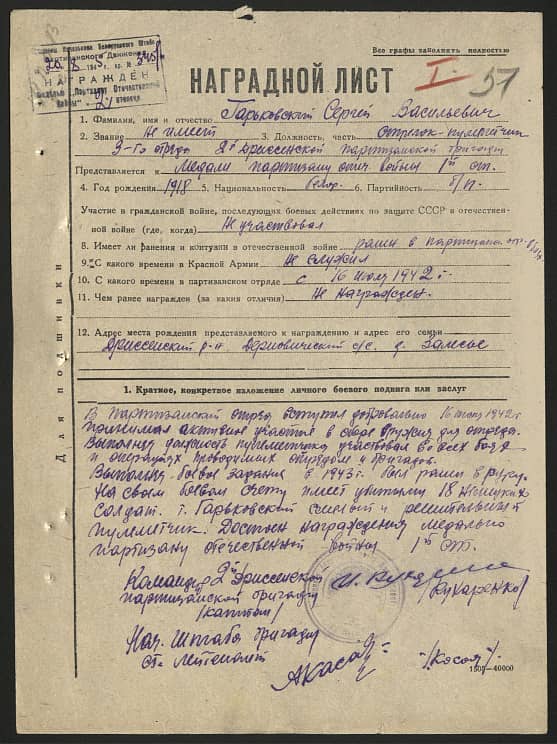 Начальника Белорусского Штаба
Партизанского Движения
НАГРАЖДЕН
медалью "Партизану Отечественной
Войны" 2 степени
Все графы заполнять полностью
I. 51
НАГРАДНОЙ ЛИСТ
1. Фамилия, имя и отчество Гарьковский Сергей Васильевич
2. Звание Не имеет 3. Должность, часть Стрелок-пулеметчик
3-го отряда 2й Дриссенской партизанской бригады
Представляется к Медали партизану отеч. войны 1й ст.
4. Год рождения 1918 5. Национальность белор. 6. Партийность б/п.
Участие в гражданской войне, последующих боевых действиях по защите СССР и отечествен-
ной войне (где, когда) Не участвовал
8. Имеет ли ранения и контузии в отечественной войне ранен в партизанск. отр.
9. С какого времени в Красной Армии Не служил
10. С какого времени в партизанском отряде с 16 июля 1942 г.
11. Чем ранее награжден (за какие отличия) Не награжден.
12. Адрес места рождения представляемого к награждению и адрес его семьи
Дриссенский р-н Дерновический с/с. д. Залесье
Для подшивки
1. Краткое, конкретное изложение личного боевого подвига или заслуг
В партизанский отряд вступил добровольно 16 июля 1942 г
принимал активное участие в сборе оружия для отряда.
Выполняя должность пулеметчика участвовал во всех боях
и операциях проводимых отрядом и бригадой.
Выполняя боевое задание в 1943 г. был ранен в руку.
На своем боевом счету имеет убитыми 18 немецких
солдат. т. Гарьковский смелый и решительный
пулеметчик. Достоин награждения медалью
партизану отечественной войны 1й ст.
Командир 2й Дриссенской
партизанской бригады
/капитан/
/Кухаренко/
Нач. штаба бригады
ст. лейтенант
АКосая
/Косая/
1505-40000